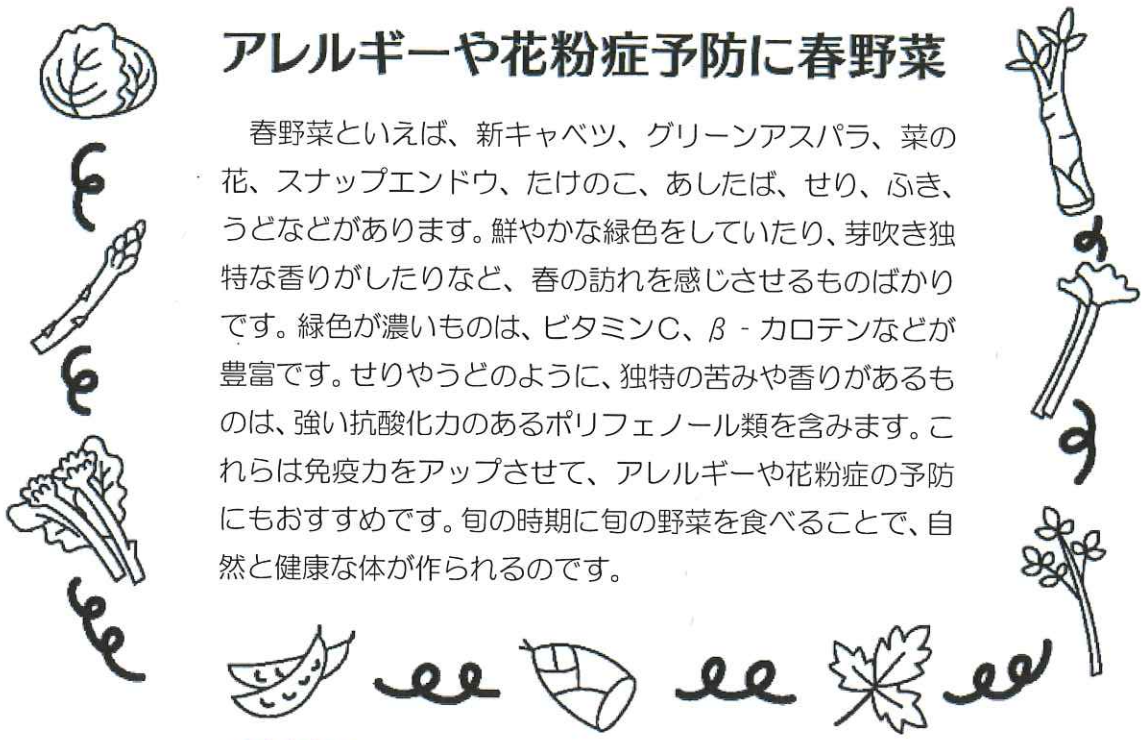 アレルギーや花粉症予防に春野菜
春野菜といえば、新キャベツ、グリーンアスパラ、菜の
花、スナップエンドウ、たけのこ、あしたば、せり、ふき、
うどなどがあります。鮮やかな緑色をしていたり、芽吹き独
特な香りがしたりなど、春の訪れを感じさせるものばかり
です。緑色が濃いものは、ビタミンC、β‐カロテンなどが
豊富です。せりやうどのように、独特の苦みや香りがあるも
のは、強い抗酸化力のあるポリフェノール類を含みます。こ
れらは免疫力をアップさせて、アレルギーや花粉症の予防
にもおすすめです。旬の時期に旬の野菜を食べることで、自
然と健康な体が作られるのです。